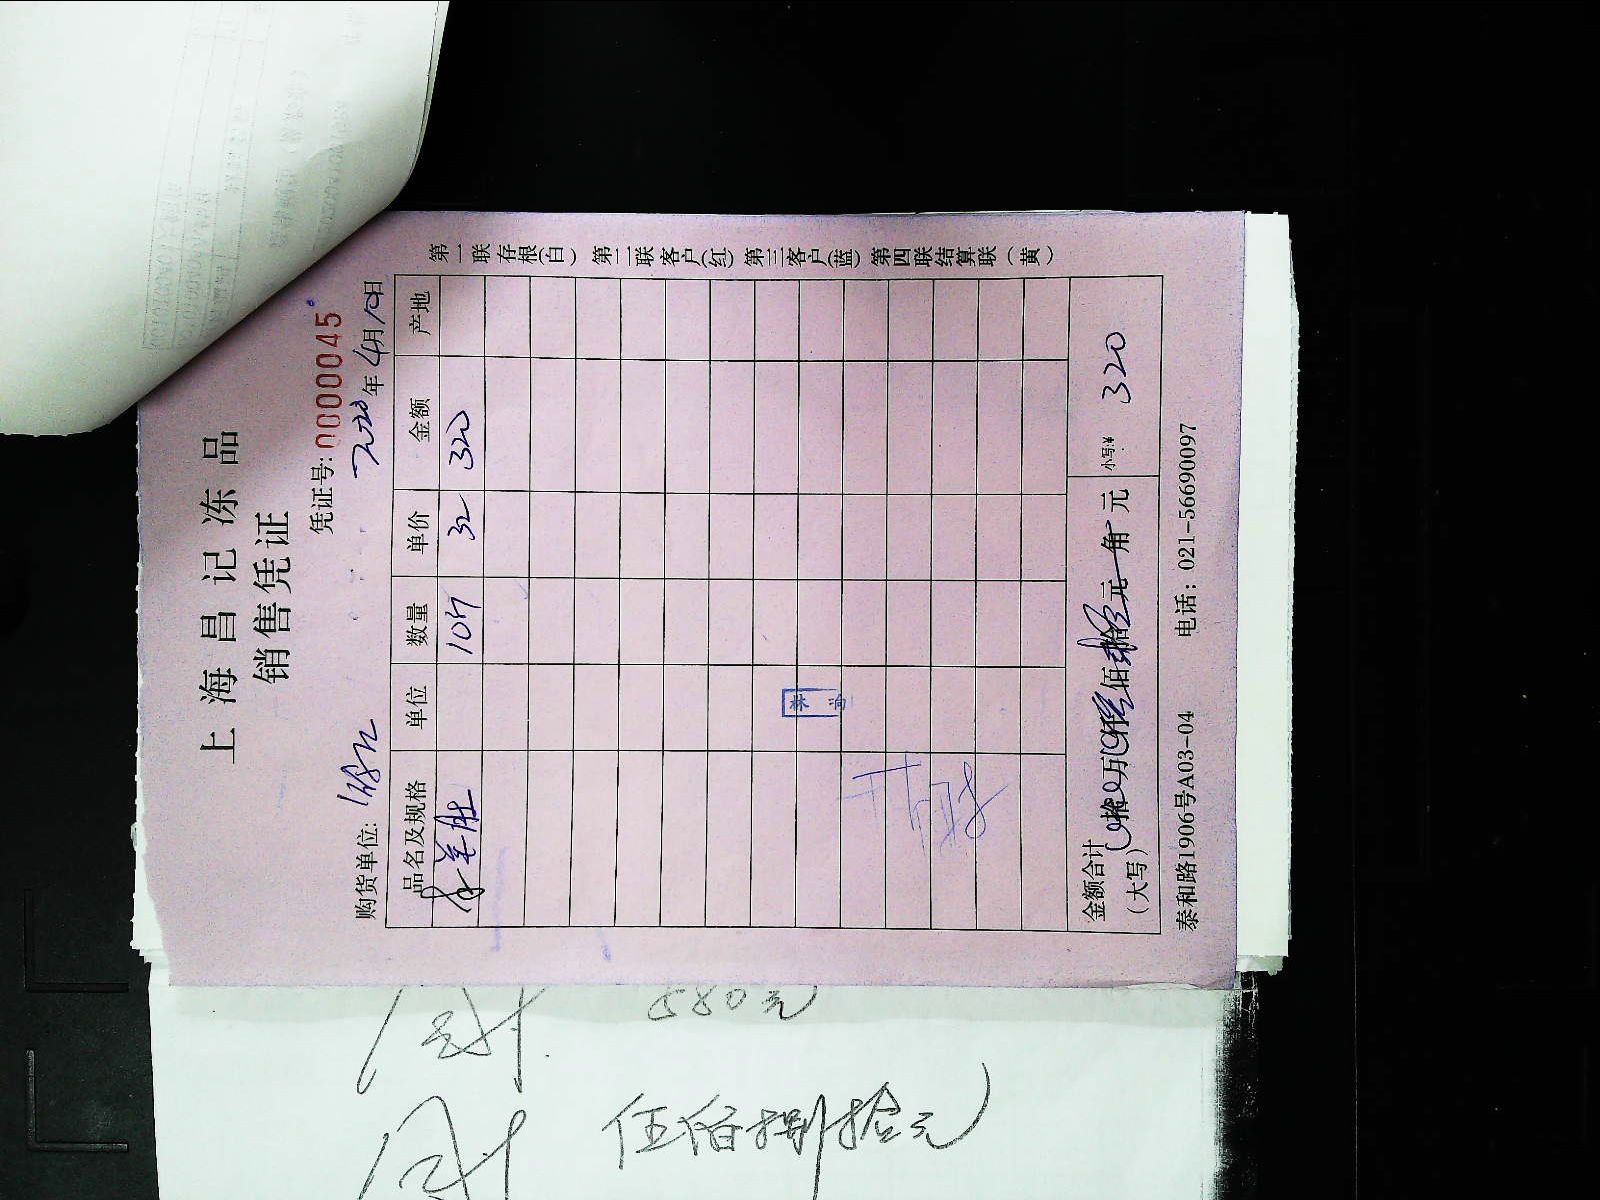 上海昌记冻品
销售凭证
凭证号: 0000045
购货单位:
2020年4月10日
品名及规格 单位 数量 单价 金额 产地
羊肚 10斤 32 320
金额合计(大写) 拾 万 仟 佰 拾 元 角 元 小写:¥ 320
泰和路1906号A03-04 电话：021-56690097
第一联存根(白) 第二联客户(红) 第三客户(蓝) 第四联结算联(黄)
合计 580元
合计 伍佰捌拾元